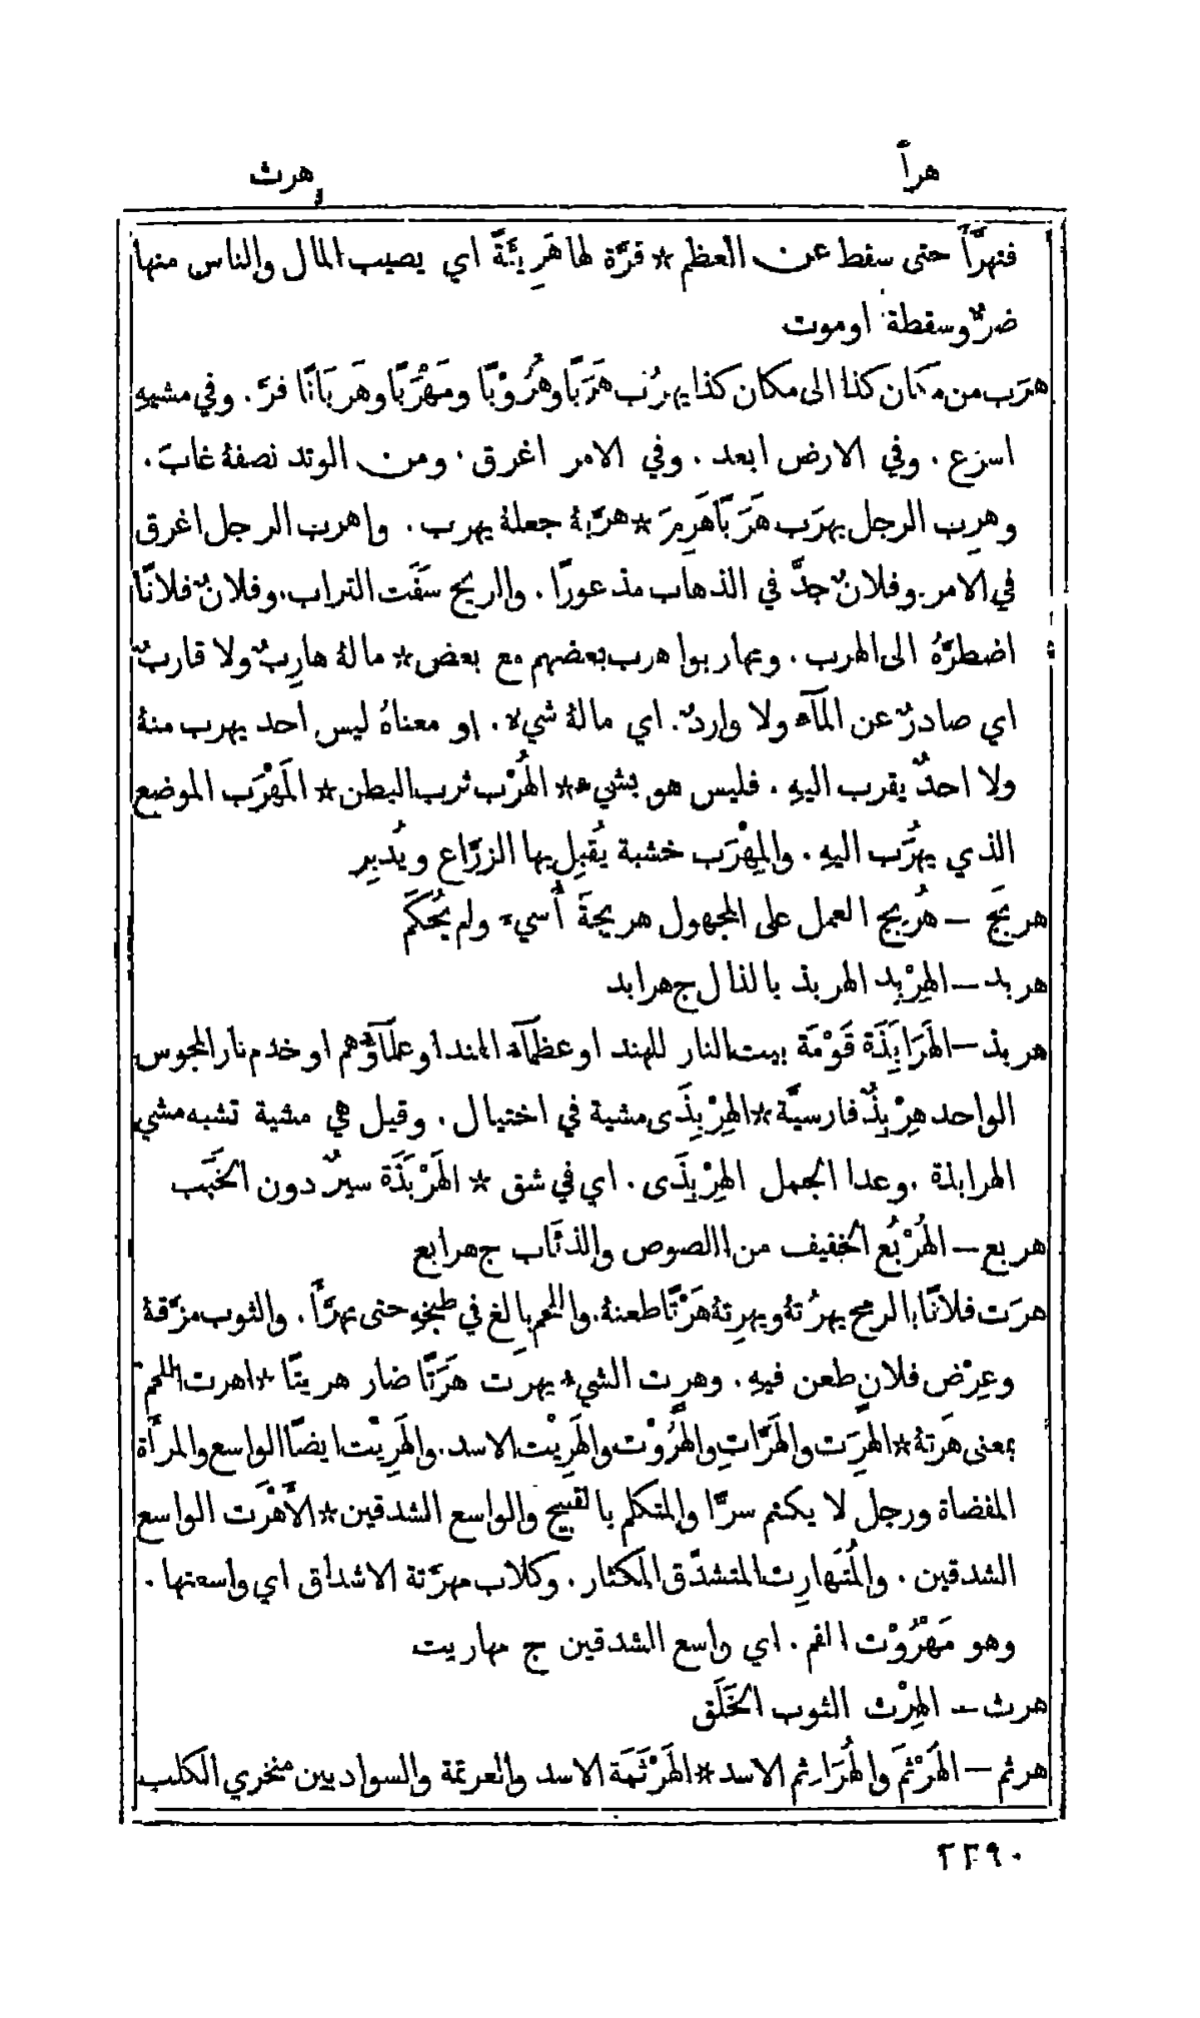 هرأ
هرث
فتهرَّأَ حتى سقط عن العظم * قرَّة لها هَرِيْئَةً اي يصيب المال والناس منها
ضرٌّ وسقطة او موت
هرَب من مكان كذا الى مكان كذا يهرُب هَرَبًا وهُرُوْبًا ومَهْرَبًا وهَرَبَانًا فرَّ. وفي مشيهِ
اسرع. وفي الارض ابعد. وفي الامر اغرق. ومن الوتد نصفهُ غابَ.
وهرِب الرجل يهرَب هَرَبًا هَرِمَ * هرَّبهُ جعلهُ يهرب. واهرب الرجل اغرق
في الامر. وفلانٌ جدَّ في الذهاب مذعورًا. والريح سَفَت التراب. وفلانٌ فلانًا
اضطرَّهُ الى الهرب. وتهاربوا هرب بعضهم مع بعض * ما لهُ هارِبٌ ولا قاربٌ
اي صادرٌ عن المآء ولا واردٌ. اي ما لهُ شيء. او معناهُ ليس احد يهرب منهُ
ولا احدٌ يقرب اليهِ. فليس هو بشيء * الهُرْب ثرب البطن * المَهْرَب الموضع
الذي يهُرَب اليهِ. والمِهْرَب خشبة يُقبِل بها الزرَّاع ويُدبِر
هربَج – هُربِج العمل على المجهول هربجةً أُسيء ولم يُحكَم
هربد – الهِرْبِد الهربذ بالذال ج هرابد
هربذ – الهَرَابِذَة قَوْمَة بيت النار للهند او عظمآء الهند او علمآؤهم او خدم نار المجوس
الواحد هِرْبِذٌ فارسيَّة * الهِرْبِذَى مشية في اختيال. وقيل هي مشية تشبه مشي
الهرابذة. وعدا الجمل الهِرْبِذَى. اي في شق * الهَرْبَذَة سيرٌ دون الخَبَب
هربع – الهُرْبُع الخفيف من اللصوص والذئاب ج هرابع
هرَت فلانًا بالرمح يهرُتهُ ويهرِتهُ هَرْتًا طعنهُ. واللحم بالغ في طبخهِ حتى تهرَّأَ. والثوب مزَّقهُ
وعِرْض فلانٍ طعن فيهِ. وهرِت الشيء يهرَت هَرَتًا صار هريتًا * اهرت اللحم
بمعنى هَرَتهُ * الهرِت والهَرَّات والهَرُوْت والهَرِيْت الاسد. والهَرِيْت ايضًا الواسع والمرأَة
المفضاة ورجل لا يكتم سرًّا والمتكلم بالقبيح والواسع الشدقين * الأَهْرَت الواسع
الشدقين. والمُتَهارِت المتشدّق المكثار. وكلاب مهرَّتة الاشداق اي واسعتها.
وهو مَهْرُوْت الفم. اي واسع الشدقين ج مهاريت
هرث – الهِرْث الثوب الخَلَق
هرثم – الهَرْثَم والهُرَارِثم الاسد * الهَرْثَمَة الاسد والعرتمة والسواد بين منخري الكلب
٢٢٩٠